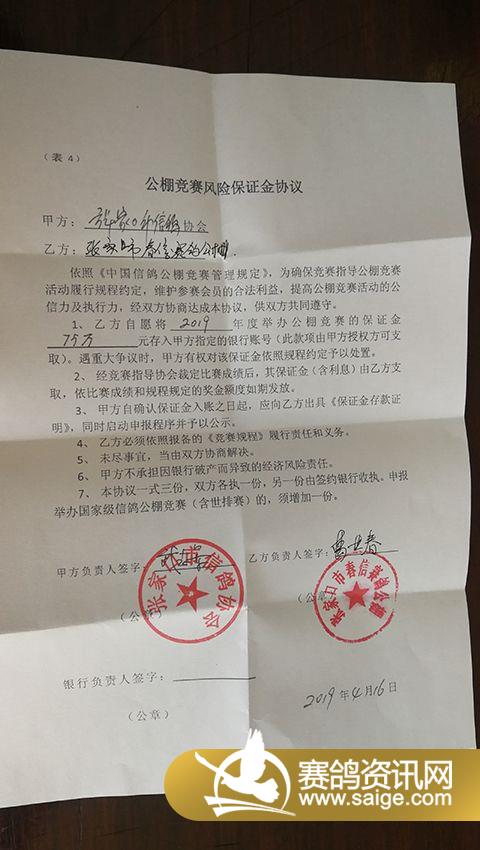 （表 4）
公棚竞赛风险保证金协议
甲方：张家口市信鸽协会
乙方：张家口市春信赛鸽公棚
依照《中国信鸽公棚竞赛管理规定》，为确保竞赛指导公棚竞赛
活动履行规程约定，维护参赛会员的合法利益，提高公棚竞赛活动的公
信力及执行力，经双方协商达成本协议，供双方共同遵守。
1、乙方自愿将 2019 年度举办公棚竞赛的保证金
元存入甲方指定的银行账号（此款项由甲方授权方可支
取）。遇重大争议时，甲方有权对该保证金依照规程约定予以处置。
2、经竞赛指导协会裁定比赛成绩后，其保证金（含利息）由乙方支
取，依比赛成绩和规程规定的奖金额度如期发放。
3、甲方自确认保证金入账之日起，应向乙方出具《保证金存款证
明》，同时启动申报程序并予以公示。
4、乙方必须依照报备的《竞赛规程》履行责任和义务。
5、未尽事宜，当由双方协商解决。
6、甲方不承担因银行破产而异致的经济风险责任。
7、本协议一式三份，双方各执一份，另一份由签约银行收执。申报
举办国家级信鸽公棚竞赛（含世排赛）的，须增加一份。
甲方负责人签字： 乙方负责人签字：
（公章） （公章）
张家口市信鸽协会
张家口市春信赛鸽公棚
银行负责人签字：
（公章）
2019 年 4 月 16 日
赛鸽资讯网
www.saige.com